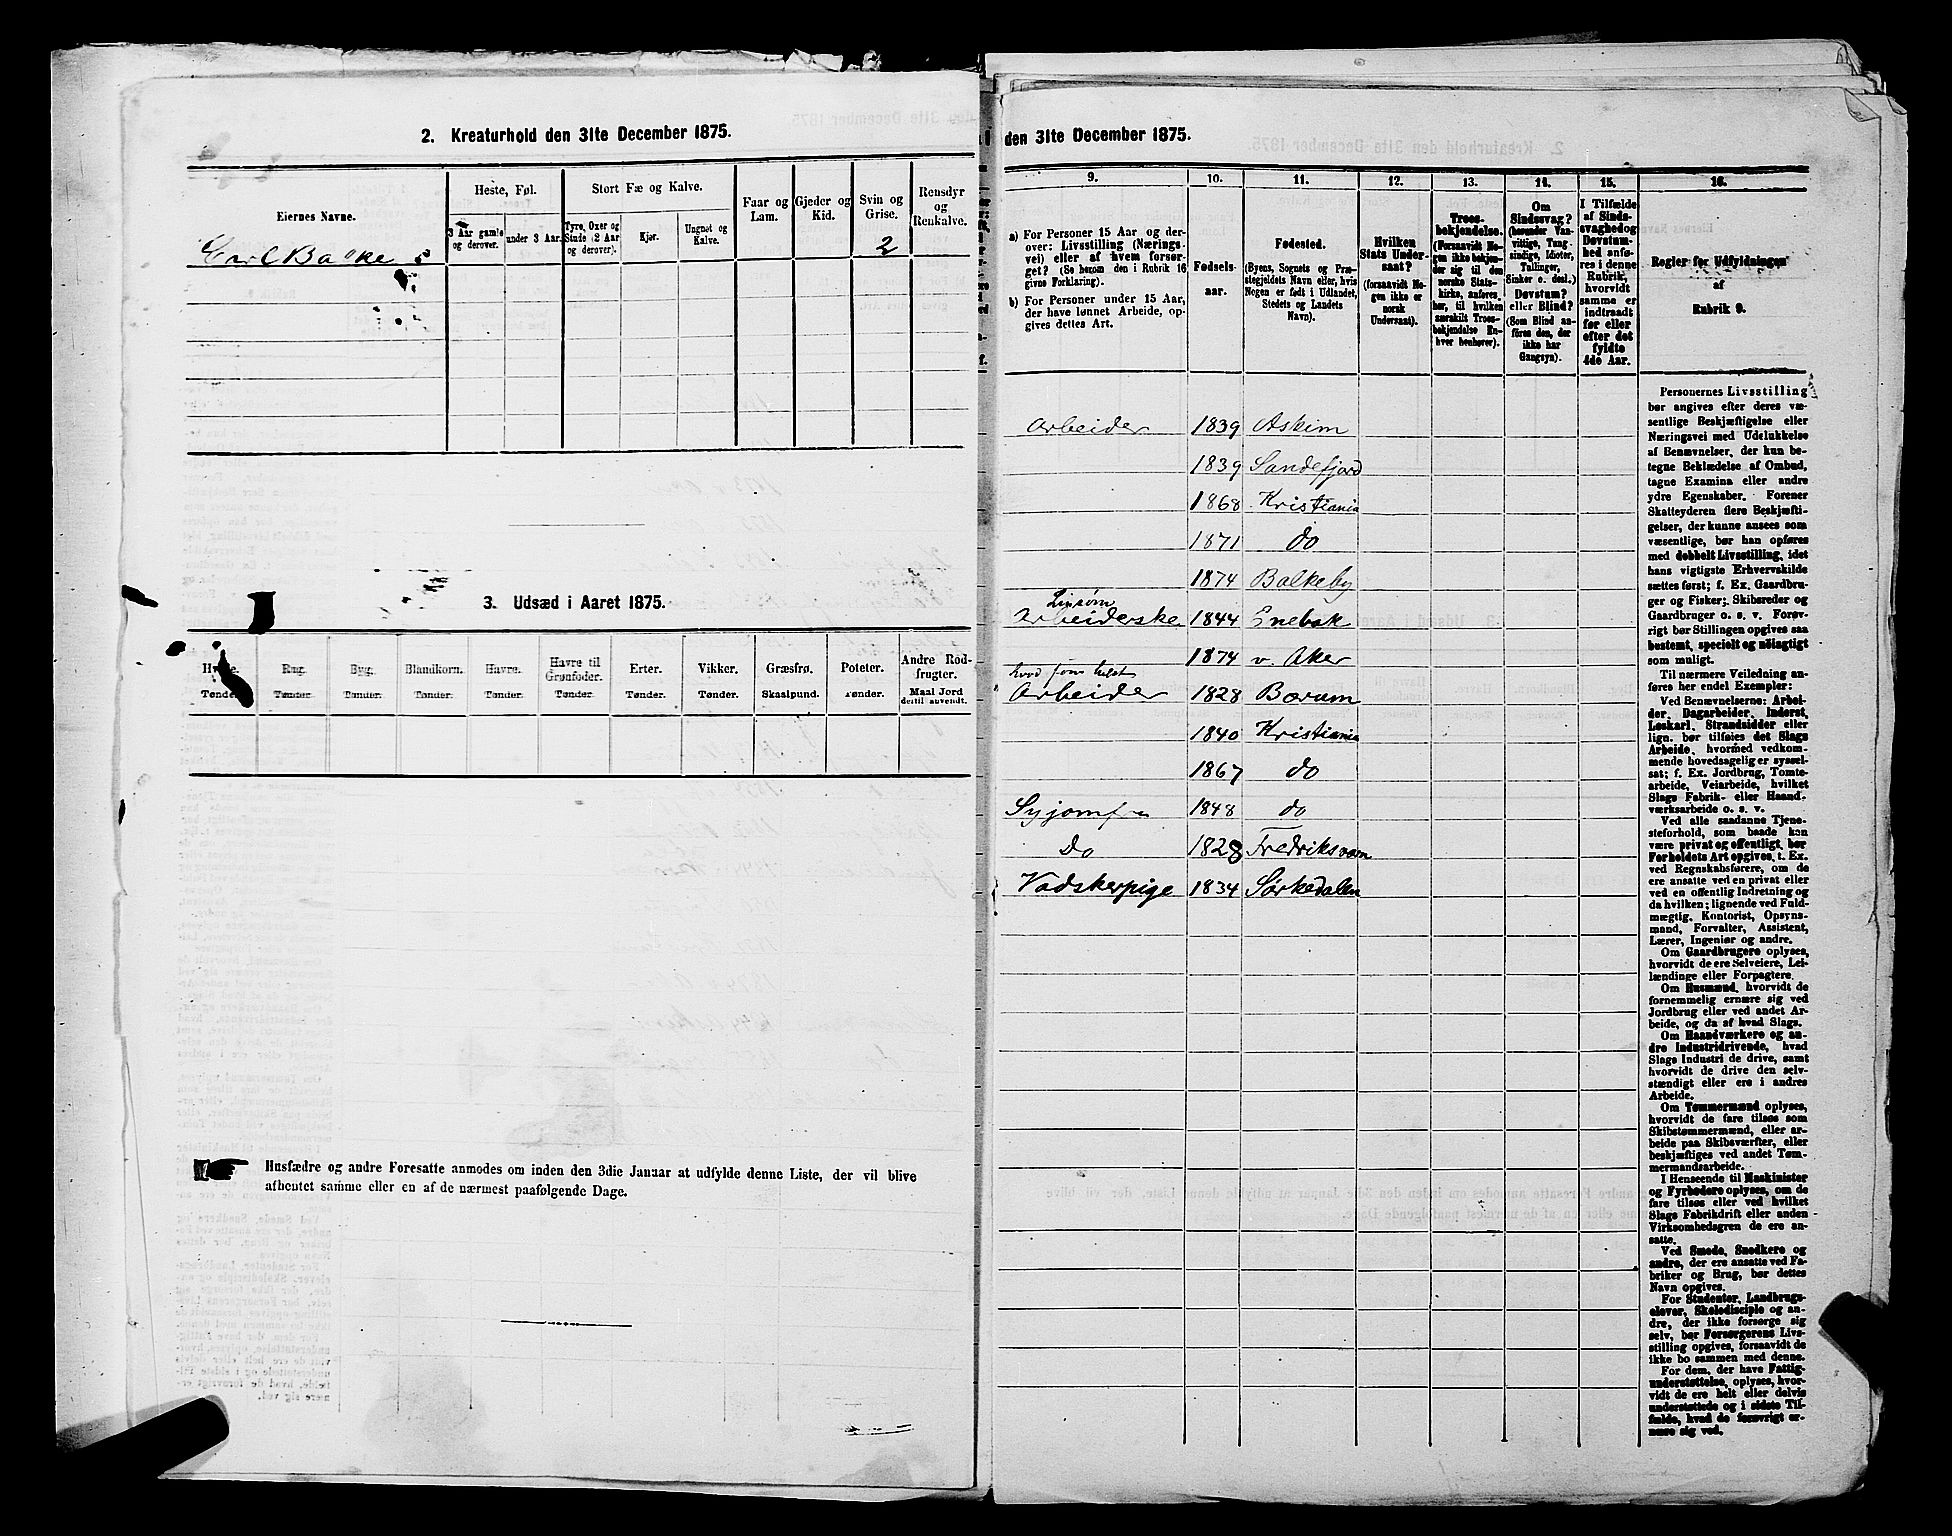 2. Kreaturhold den 31te December 1875.
Eiernes Navne.
Heste, Føl.
3 Aar gamle og derover.
under 3 Aar.
Stort Fæ og Kalve.
Tyre, Oxer og Stude (2 Aar og derover).
Kjør.
Ungnøt og Kalve.
Faar og Lam.
Gjeder og Kid.
Svin og Grise.
Rensdyr og Renkalve.
Carl Balke
2
3. Udsæd i Aaret 1875.
Tønder.
Rug.
Tønder.
Byg.
Tønder.
Blandkorn.
Tønder.
Havre.
Tønder.
Havre til Grønfoder.
Tønder.
Erter.
Tønder.
Vikker.
Tønder.
Græsfrø.
Skaalpund.
Poteter.
Tønder.
Andre Rodfrugter.
Maal Jord dertil anvendt.
Husfædre og andre Foresatte anmodes om inden den 3die Januar at udfylde denne Liste, der vil blive
afhentet samme eller en af de nærmest paafølgende Dage.
den 31te December 1875.
9.
10.
11.
12.
13.
14.
15.
16.
a) For Personer 15 Aar og der-
over: Livsstilling (Nærings-
vei) eller af hvem forsør-
get? (Se herom den i Rubrik 16
givne Forklaring).
b) For Personer under 15 Aar,
der have lønnet Arbeide, op-
gives dettes Art.
Fødsels-
aar.
Fødested.
(Byens, Sognets og Præ-
stegjeldets Navn eller, hvis
Nogen er født i Udlandet,
Stedets og Landets
Navn).
Hvilken
Stats Under-
saat?
(forsaavidt No-
gen ikke er
norsk
Undersaat).
Troes-
bekjendelse.
(Forsaavidt No-
gen ikke bekjen-
der sig til den
norske Stats-
kirke, anføres
her, til hvilken
særskilt Troes-
bekjendelse En-
hver henhører).
Om
Sindssvag?
(herunder Van-
vittige, Tung-
sindige, Idioter,
Tullinger,
Sinker o. desl.)
Døvstum?
eller Blind?
(Som Blind an-
føres den, der
ikke har
Gangsyn).
I Tilfælde
af Sinds-
svaghed og
Døvstum-
hed anfø-
res i denne
Rubrik,
hvorvidt
samme er
indtraadt
før eller
efter det
fyldte
4de Aar.
Regler for Udfyldningen
af
Rubrik 9.
Arbeider 1839 Askim
1839 Sandefjord
1868 Kristiania
1871 do
1874 Balkeby
Linsøm
Arbeiderske 1844 Enebak
1874 v. Aker
hvad som helst
Arbeider 1828 Bærum
1840 Kristiania
1867 do
Syjomfru 1848 do
Do 1828 Fredriksværn
Vadskerpige 1834 Sørkedalen
Personernes Livsstilling
bør angives efter deres væ-
sentlige Beskjæftigelse eller
Næringsvei med Udelukkelse
af Benævnelser, der kun be-
tegne Beklædelse af Ombud,
tagne Examina eller andre
ydre Egenskaber. Forener
Skatteyderen flere Beskjæfti-
gelser, der kunne ansees som
væsentlige, bør han opføres
med dobbelt Livsstilling, idet
hans vigtigste Erhvervskilde
sættes først; f. Ex. Gaardbru-
ger og Fisker; Skibsreder og
Gaardbruger o. s. v. Forøv-
rigt bør Stillingen opgives saa
bestemt, specielt og nøiagtigt
som muligt.
Til nærmere Veiledning an-
føres her endel Exempler:
Ved Benævnelserne: Arbei-
der, Dagarbeider, Inderst,
Løskarl, Strandsidder eller
lign. bør tilføies det Slags
Arbeide, hvormed vedkom-
mende hovedsagelig er syssel-
sat; f. Ex. Jordbrug, Tomte-
arbeide, Veiarbeide, hvilket
Slags Fabrik- eller Haand-
værksarbeide o. s. v.
Ved alle saadanne Tjene-
steforhold, som baade kan
være privat og offentligt, bør
Forholdets Art opgives, t. Ex.
ved Regnskabsførere, om de
ere ansatte ved en privat eller
ved en offentlig Indretning og
da hvilken; lignende ved Fuld-
mægtig, Kontorist, Opsyns-
mand, Forvalter, Assistent,
Lærer, Ingeniør og andre.
Om Gaardbrugere oplyses,
hvorvidt de ere Selveiere, Lei-
lændinge eller Forpagtere.
Om Husmænd, hvorvidt de
fornemmelig ernære sig ved
Jordbrug eller ved andet Ar-
beide, og da af hvad Slags.
Om Haandværkere og an-
dre Industridrivende, hvad
Slags Industri de drive, samt
hvorvidt de drive den selv-
stændigt eller ere i andres
Arbeide.
Om Tømmermænd oplyses,
hvorvidt de fare tilsøs som
Skibstømmermænd, eller ar-
beide paa Skibsværfter, eller
beskjæftiges ved andet Tøm-
mermandsarbeide.
I Henseende til Maskinister
og Fyrbødere oplyses, om de
fare tilsøs eller ved hvilket
Slags Fabrikdrift eller anden
Virksomhedsgren de ere an-
satte.
Ved Smede, Snedkere og
andre, der ere ansatte ved Fa-
briker og Brug, bør dettes
Navn opgives.
For Studenter, Landbrugs-
elever, Skoledisciple og an-
dre, der ikke forsørge sig
selv, bør Forsørgerens Livs-
stilling opgives, forsaavidt de
ikke bo sammen med denne.
For dem, der have Fattig-
understøttelse, oplyses, hvor-
vidt de ere helt eller delvis
understøttede og i sidste Til-
fælde, hvad de forøvrigt er-
nære sig ved.